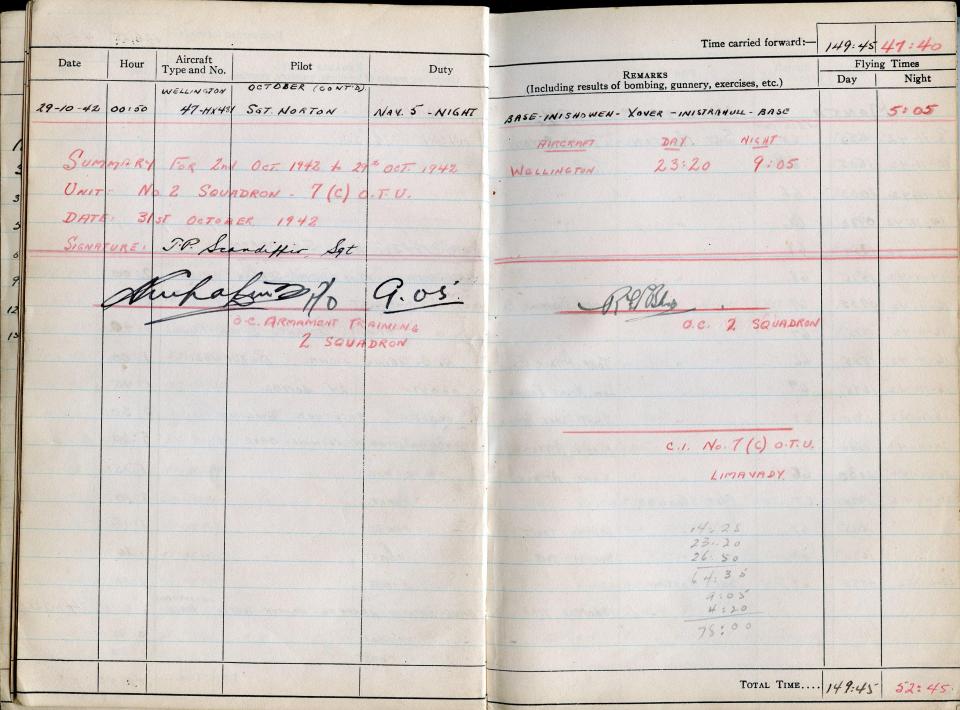 Time carried forward:— 149:45 47:40
Date Hour Aircraft Type and No. Pilot Duty
REMARKS
(Including results of bombing, gunnery, exercises, etc.)
Flying Times
Day Night
WELLINGTON OCTOBER (CONT'D)
29-10-42 00:50 47-HX431 SGT. NORTON NAV. 5 - NIGHT
BASE-INISHOWEN- XOVER -INISTRAHULL - BASE 5:05
SUMMARY FOR 2nd OCT 1942 to 29th OCT. 1942
UNIT: No 2 SQUADRON - 7 (C) O.T.U.
DATE: 31ST OCTOBER 1942
SIGNATURE: J.P. Scandiffio, Sgt
AIRCRAFT DAY NIGHT
WELLINGTON 23:20 9:05
F/O 9.05
O.C. ARMAMENT TRAINING
2 SQUADRON
O.C. 2 SQUADRON
C.I. No. 7 (C) O.T.U.
LIMAVADY
14:25
23:20
26:50
64:35
9:05
4:20
78:00
TOTAL TIME.... 149:45 52:45